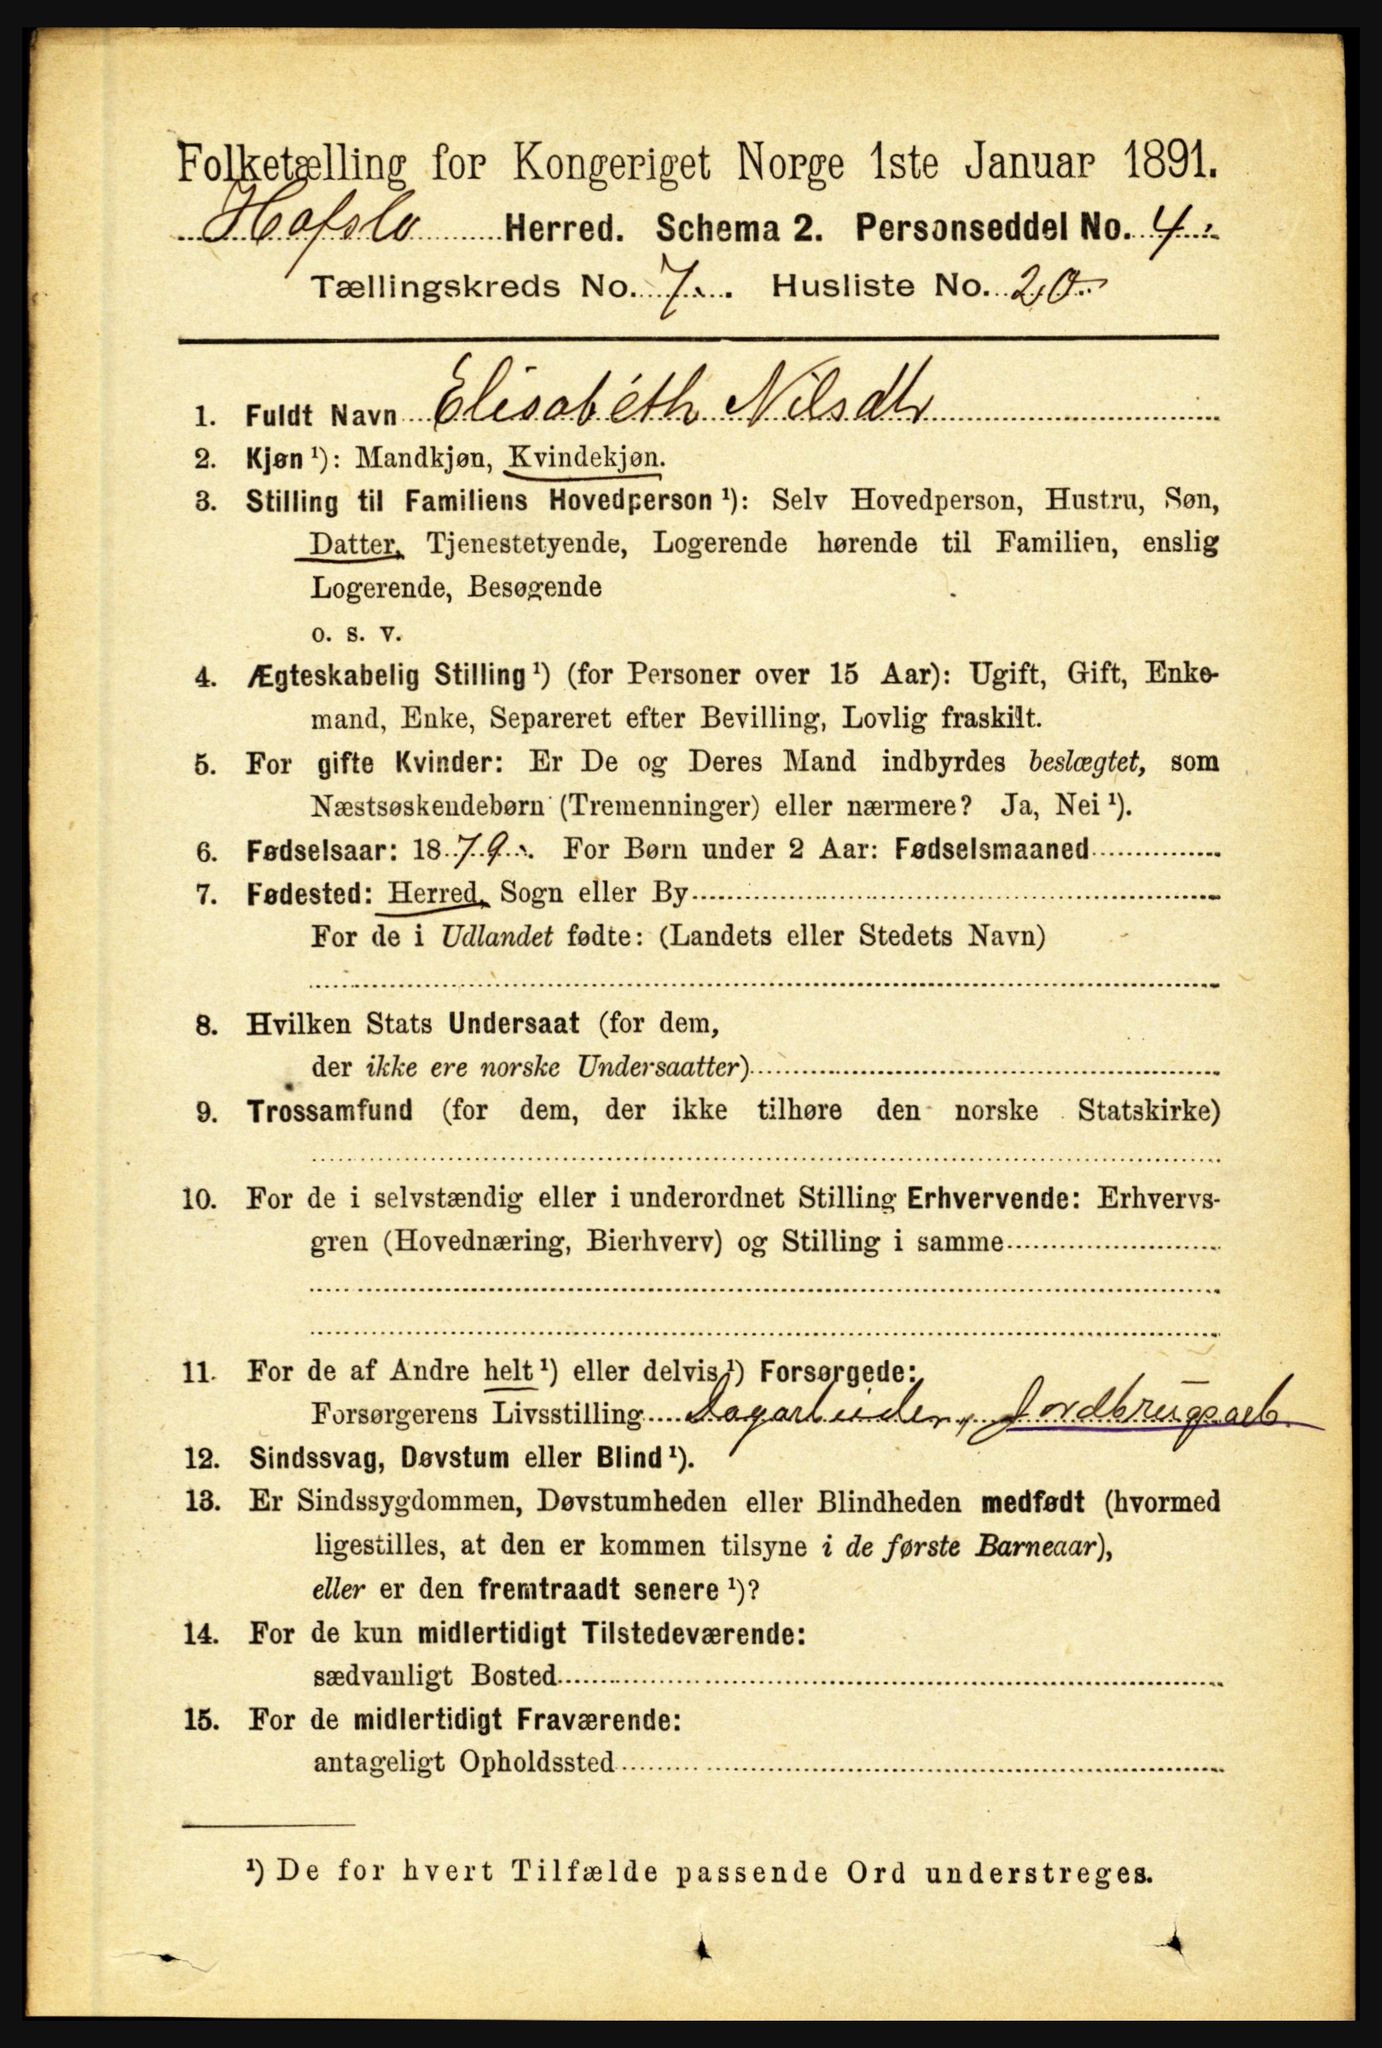 Folketælling for Kongeriget Norge 1ste Januar 1891.
Hafslo Herred. Schema 2. Personseddel No. 4.
Tællingskreds No. 7. Husliste No. 20
1. Fuldt Navn Elisabéth Nilsdtr
2. Kjøn ¹): Mandkjøn, Kvindekjøn.
3. Stilling til Familiens Hovedperson ¹): Selv Hovedperson, Hustru, Søn,
Datter, Tjenestetyende, Logerende hørende til Familien, enslig
Logerende, Besøgende
o. s. v.
4. Ægteskabelig Stilling ¹) (for Personer over 15 Aar): Ugift, Gift, Enke-
mand, Enke, Separeret efter Bevilling, Lovlig fraskilt.
5. For gifte Kvinder: Er De og Deres Mand indbyrdes beslægtet, som
Næstsøskendebørn (Tremenninger) eller nærmere? Ja, Nei ¹).
6. Fødselsaar: 1879. For Børn under 2 Aar: Fødselsmaaned
7. Fødested: Herred, Sogn eller By
For de i Udlandet fødte: (Landets eller Stedets Navn)
8. Hvilken Stats Undersaat (for dem,
der ikke ere norske Undersaatter)
9. Trossamfund (for dem, der ikke tilhøre den norske Statskirke)
10. For de i selvstændig eller i underordnet Stilling Erhvervende: Erhvervs-
gren (Hovednæring, Bierhverv) og Stilling i samme
11. For de af Andre helt ¹) eller delvis ¹) Forsørgede:
Forsørgerens Livsstilling Dagarbeider, Jordbrugsarb.
12. Sindssvag, Døvstum eller Blind ¹).
13. Er Sindssygdommen, Døvstumheden eller Blindheden medfødt (hvormed
ligestilles, at den er kommen tilsyne i de første Barneaar),
eller er den fremtraadt senere ¹)?
14. For de kun midlertidigt Tilstedeværende:
sædvanligt Bosted
15. For de midlertidigt Fraværende:
antageligt Opholdssted
¹) De for hvert Tilfælde passende Ord understreges.